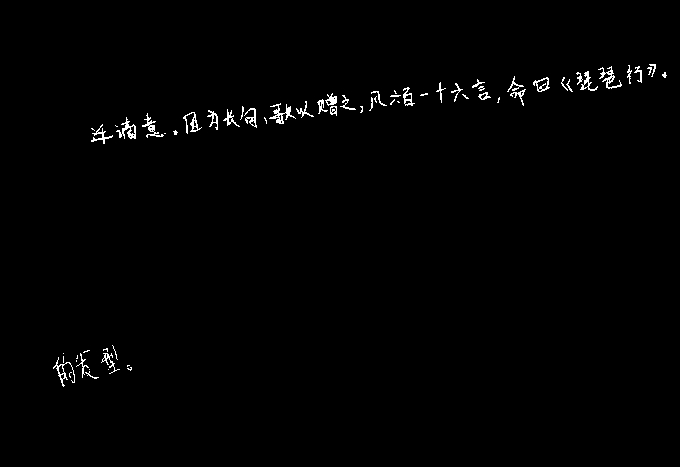 谪意。因为长句,歌以赠之,凡六百一十六言,命曰《琵琶行》。
的发型。